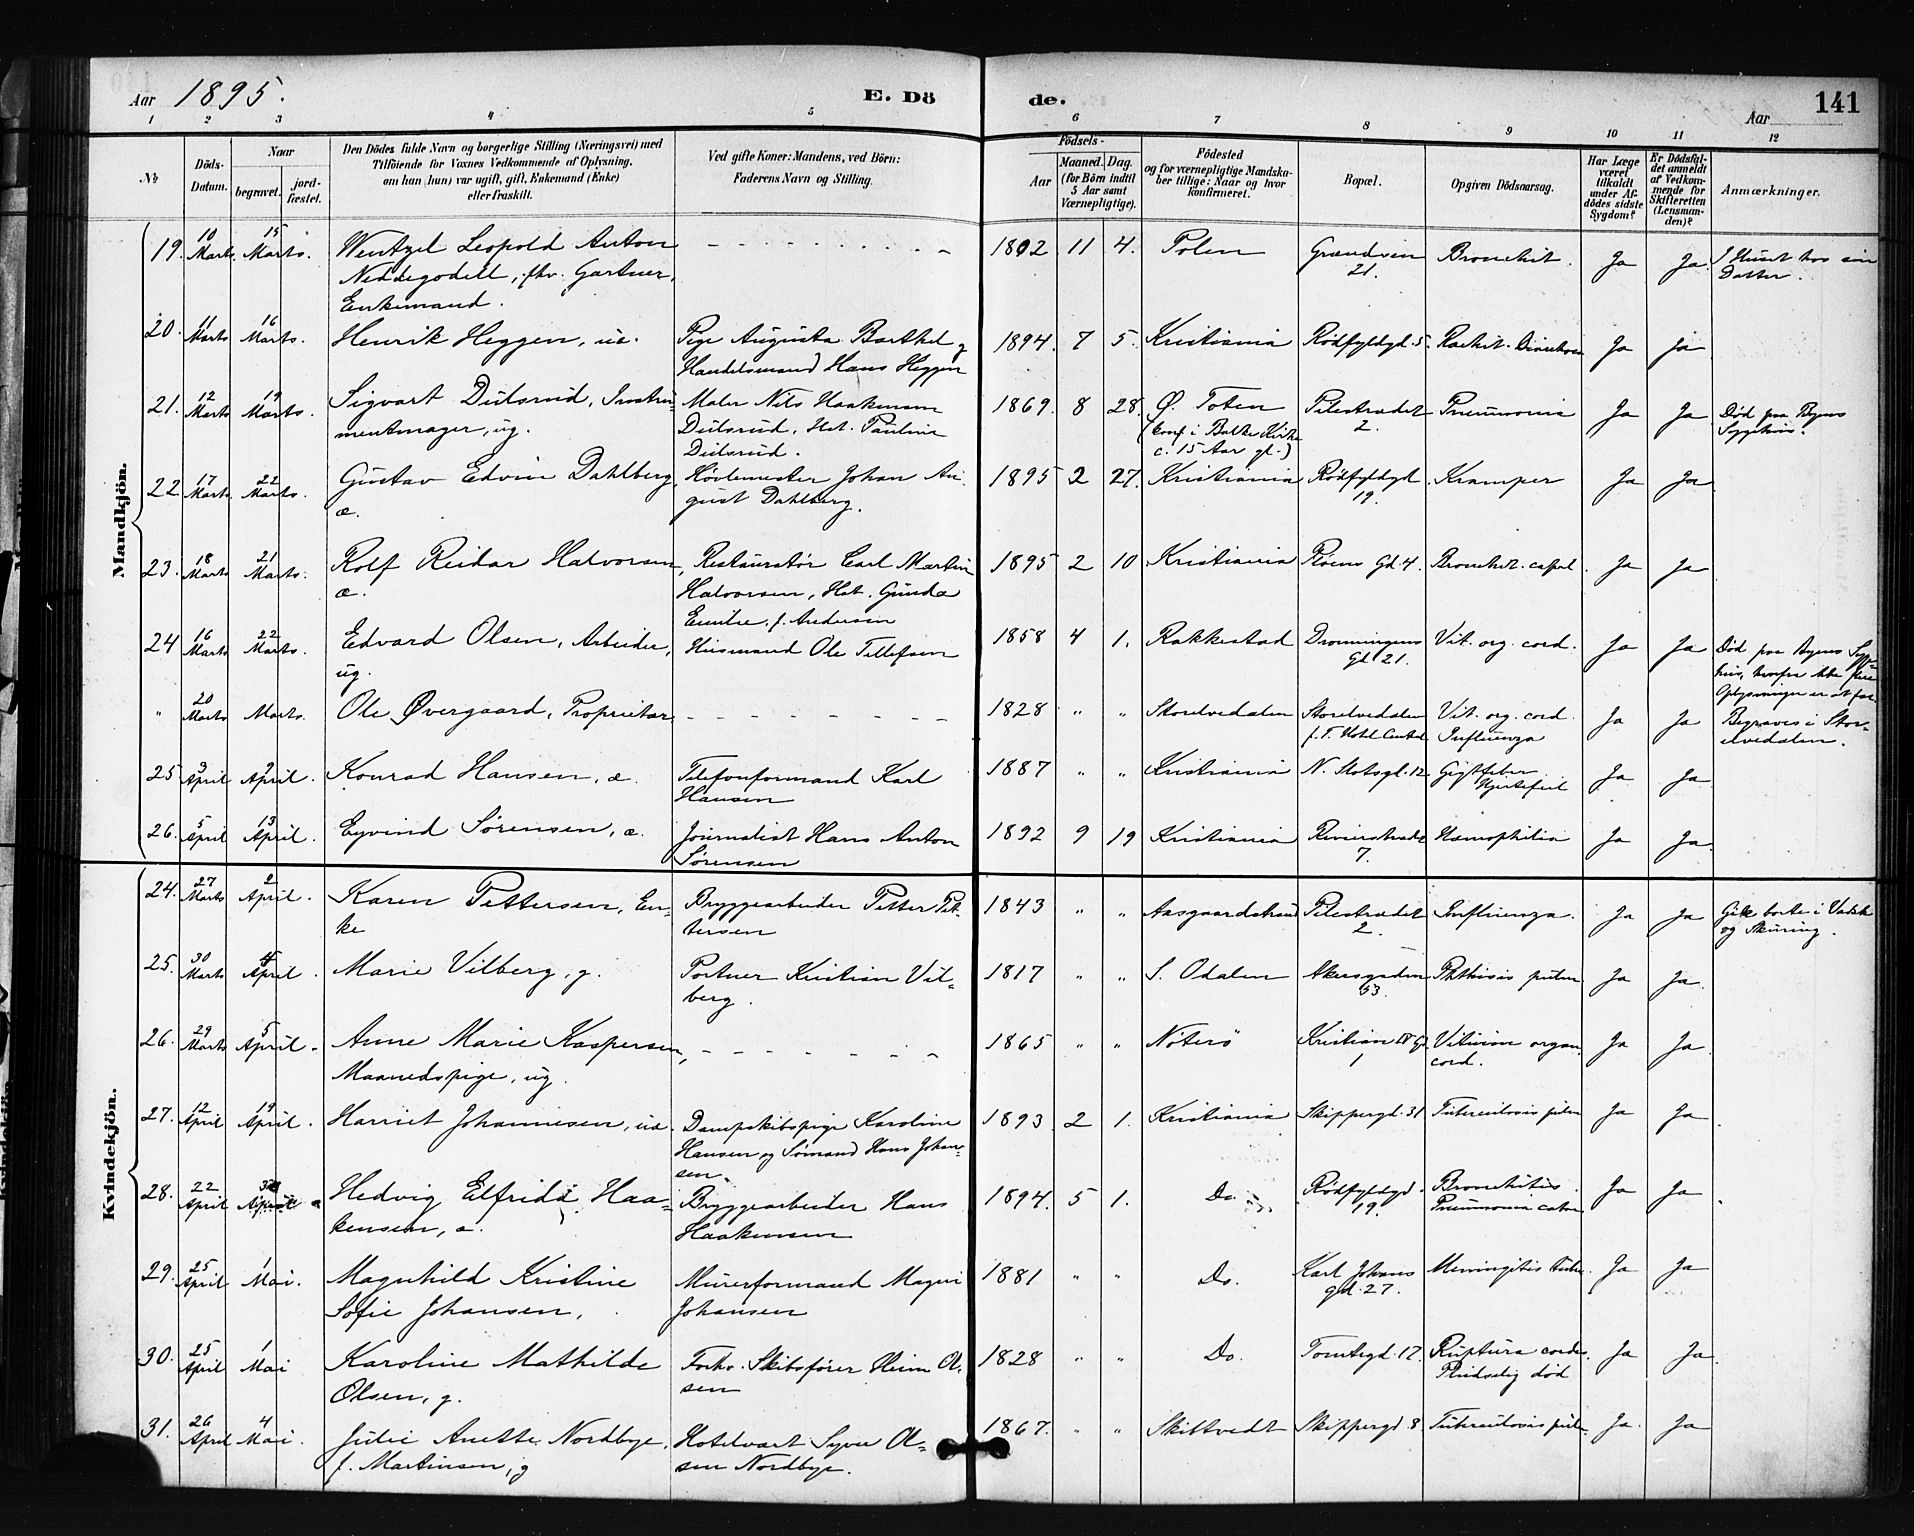 Aar 1895.
E. Döde.
Aar
141
1 2 3 4 5 6 7 8 9 10 11 12
№
Döds-Datum.
Naar
begravet.
jord-fæstet.
Den Dödes fulde Navn og borgerlige Stilling (Næringsvei) med
Tilföiende for Voxnes Vedkommende af Oplysning,
om han (hun) var ugift, gift, Enkemand (Enke)
eller fraskilt.
Ved gifte Koner: Mandens, ved Börn:
Faderens Navn og Stilling.
Födsels-
Aar
Maaned. Dag.
(for Börn indtil
5 Aar samt
Værnepligtige).
Födested
og for værnepligtige Mandska-
ber tillige: Naar og hvor
konfirmeret.
Bopæl.
Opgiven Dödsaarsag.
Har Læge
været
tilkaldt
under Af-
dödes sidste
Sygdom?
Er Dödsfal-
det anmeldt
af Vedkom-
mende for
Skifteretten
(Lensman-
den)?
Anmærkninger.
Mandkjön.
19. 10 Marts. 15 Marts. Wentzel Leopold Anton - - - 1802 11 4. Polen Grændsen 21. Bronchit. Ja Ja I Huset hos sin
Neddegodell, fhv. Gartner, Datter.
Enkemand.
20. 11 Marts 16 Marts. Henrik Heggen, ue. Pige Augusta Barthel og 1894. 7 5. Kristiania Rødfyldgd. 5. Rachit. Diarrhoe Ja Ja
Handelsmand Hans Heggen
21. 12 Marts 19 Marts. Sigvart Dulsrud, Instru- Maler Nils Haakensen 1869. 8 28. Ø. Toten Pilestrædet 2. Pneumonia Ja Ja Død paa Byens
mentmager, ug. Dulsrud, Hst. Pauline (konf. i Balke Kirke Sygehus.
Dulsrud. c. 15 Aar gl.)
22 17 Marts 22 Marts. Gustav Edvin Dahlberg Høvlemester Johan Au- 1895 2 27. Kristiania Rødfyldgd 19. Kramper Ja Ja
æ. gust Dahlberg.
23. 18 Marts 21 Marts. Rolf Reidar Halvorsen, Restauratør Carl Martin 1895 2 10 Kristiania Røens Gd. 4. Bronchit. capil. Ja Ja
æ. Halvorsen, Hst. Gunda
Emilie f. Andersen
24 16 Marts 22 Marts. Edvard Olsen, Arbeider, Husmand Ole Tellefsen 1858 4 1. Rakkestad Dronningens Gd 21. Vit. org. cord. Ja Ja Død paa Byens Syge-
ug. hus, hvorfra ikke flere
Oplysninger er at faa
" 20 Marts Marts. Ole Øvergaard, Proprietær - - - 1828 " " Storelvedalen Storelvedalen Vit. org. cord. Ja Ja Begraves i Stor-
f. T. Hotel Central Influenza elvedalen.
25 3 April 9 April. Konrad Hansen, æ. Telefonformand Karl 1887 " " Kristiania N. Slotsgd. 12 Gigtfeber Ja Ja
Hansen Hjertefeil
26. 5 April 13 April. Eyvind Sørensen, æ. Journalist Hans Anton 1892 9 19 Kristiania Revierstrædet 7. Hæmophilia Ja Ja
Sørensen
Kvindekjön.
24. 27 Marts 2 April. Karen Pettersen, En- Bryggearbeider Petter Pet- 1843 " " Aasgaardstrand Pilestrædet 2. Influenza. Ja Ja Gik borte i Vadsk
ke tersen og Skuring.
25. 30 Marts 4 April. Marie Vilberg, g. Portner Kristian Vil- 1817 " " S. Odalen Akersgaden 53. Phthisis pulm. Ja Ja
berg.
26. 29 Marts 5 April. Anne Marie Kaspersen, - - - 1865 " " Nøterø Kristian IV Gd 1 Vitium organ. Ja Ja
Maanedspige, ug. cord.
27. 12 April 19 April. Harriet Johannesen, ue. Dampskibspige Karoline 1893 2 1. Kristiania Skippergd. 31 Tuberculosis pulm Ja Ja
Hansen og Sømand Hans Johan-
sen.
28. 22 April April Hedvig Elfrida Haa- Bryggearbeider Hans 1894. 5 1. Do. Rødfyldgd. 19. Bronchitis. Ja Ja
kensen, æ. Haakensen Pneumonia catar
29. 25 April 1 Mai. Magnhild Kristine Murerformand Magni 1881 " " Do. Karl Johans Meningitis tuber. Ja Ja
Sofie Johansen, Johansen gd. 27.
30. 25 April 1 Mai Karoline Mathilde Forhv. Skibsfører Heim Ol- 1828 " " Do. Tomtegd. 17. Ruptura cordis. Ja Ja
Olsen, g. sen Pludselig død
31. 26 April 4 Mai. Julie Anette Nordbye, Hotelvært Syver Ol- 1867. " " Skittvedt Skippergd 8. Tuberculosis pulm. Ja. Ja
f. Martinsen, g sen Nordbye.